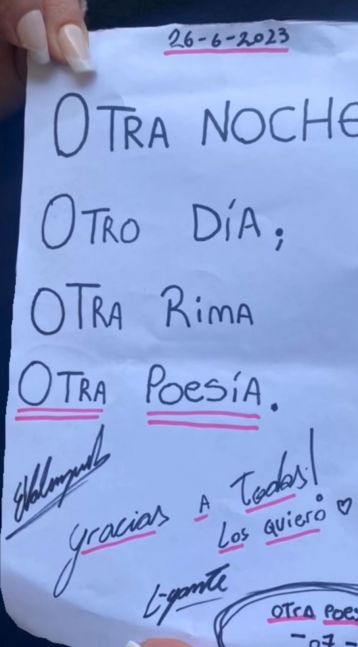 26-6-2023
OTRA NOCHE
OTRO DÍA;
OTRA RimA
OTRA POESÍA.
gracias A Todos!
Los quiero ♡
L-gante
OTRA POES
-07-